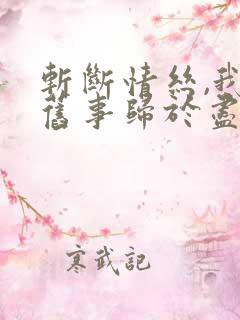 斬斷情絲,我
舊事歸於盡
寒武記